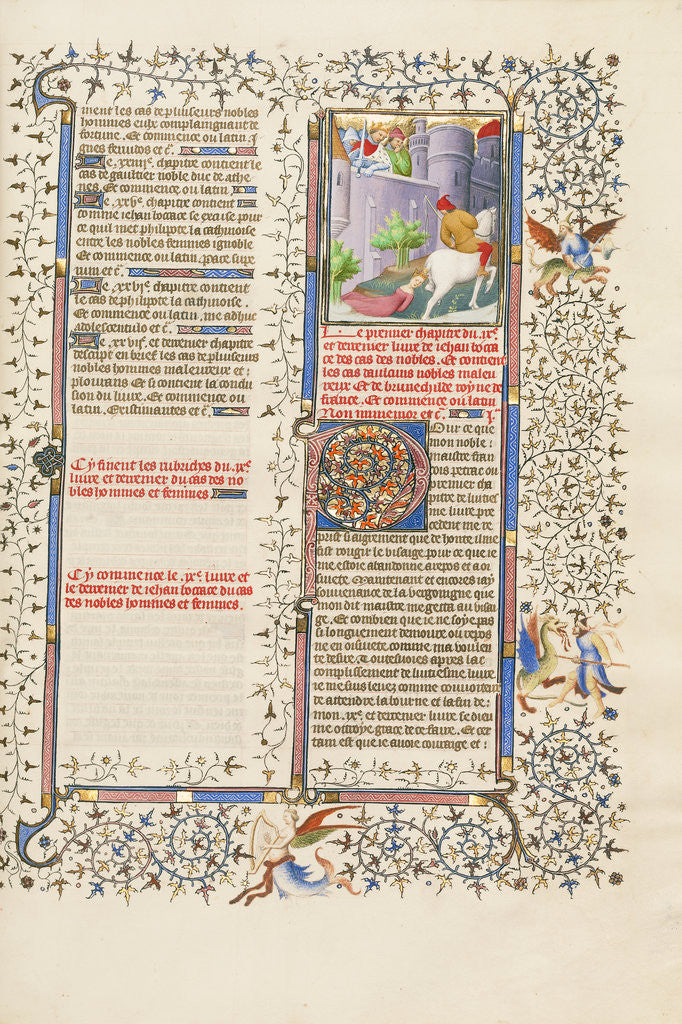 ment les cas de pluiseurs nobles
hommes eulx complaignant de
fortune. Et commence ou latin. 
gnes fenidos et c̃.
Le .xxiiije. chapitre contient le
cas de gaultier noble duc de athe
nes. Et commence ou latin
Le .xxve. chapitre contient
comme iehan bocace se excuse pour
ce quil met philippe la cathinoise
entre les nobles femmes ignoble
Et commence ou latin. pace
et c̃.
Le .xxvie. chapitre contient
le cas de philipote la cathinoise.
Et commence ou latin. me adhuc
adolescentulo et c̃.
Le .xxvije. et derrenier chapitre
descript en brief les cas de pluseurs
nobles hommes maleureux et
plourans Et si contient la conclu
sion du liure. Et commence ou
latin. Existimantes et c̃.
Cy finent les rubriches du .ixe.
liure et derrenier du cas des no
bles hommes et femmes
Cy commence le .ixe. liure et
le derrenier de iehan bocace du cas
des nobles hommes et femmes.
Le premier chapitre du .ixe.
et derrenier liure de iehan bocca
ce des cas des nobles. Et contient
les cas daulcuns nobles maleu
reux Et de brunechilde royne de
france. Et commence ou latin
Non inmemor et c̃.
Pour ce que
mon noble:
maistre fran
cois petrac ou
premier cha
pitre de luities
me liure pre
cedent me re
prist si aigrement que de honte il me
fist rougir le visaige pour ce que ie
me estoie abandonne a repos et a oi
siuete Maintenant et encores iay
souuenance de la vergoingne que
mon dit maistre me getta au visai
ge. Et combien que ie ne soye pas
si longuement demoure ou repos
ne en oisiuete comme ma voulen
te desire. Toutesuoies apres lac
complissement de luitiesme liure
ie me suis leuez comme couuoiteux
de attendre la bourne et la fin de:
mon .ixe. et derrenier liure se dieu
me ottroye grace de ce faire. Et cer
tain est que ie auoie couraige et: